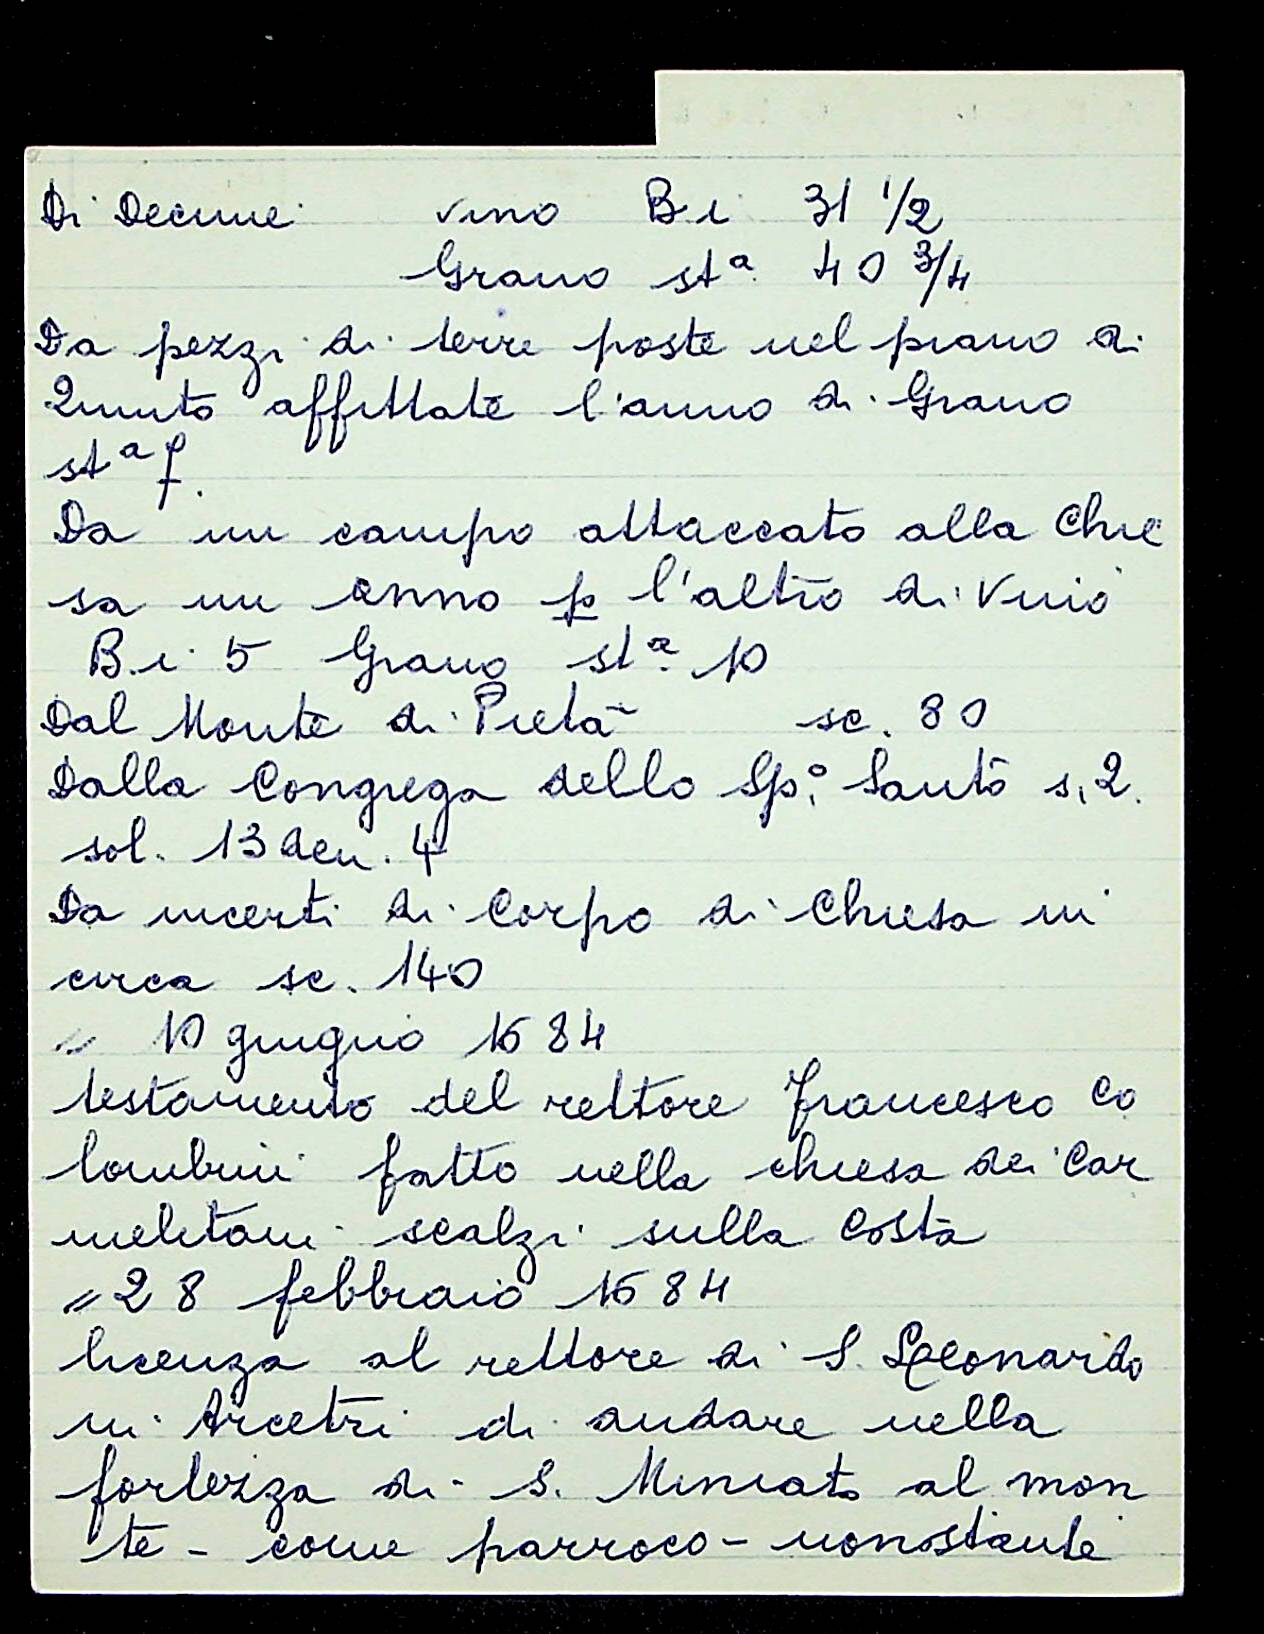 Di Decime vino B.i 31 1/2
Grano st.ª 40 3/4
Da pezzi di terre poste nel piano di
Quinto affittate l'anno di Grano
st.ª 7.
Da un campo attaccato alla Chie
sa un anno p l'altro di Vino
B.i 5 Grano st.ª 10
Dal Monte di Pietà sc. 80
Dalla Congrega dello Sp.º Santo s. 2.
sol. 13 den. 4
Da incerti di Corpo di Chiesa in
circa sc. 140
= 10 giugno 1684
testamento del rettore Francesco Co
lombini fatto nella chiesa dei Car
melitani scalzi sulla Costa
= 28 febbraio 1684
licenza al rettore di S. Leonardo
in Arcetri di andare nella
fortezza di S. Miniato al mon
te - come parroco - nonostante